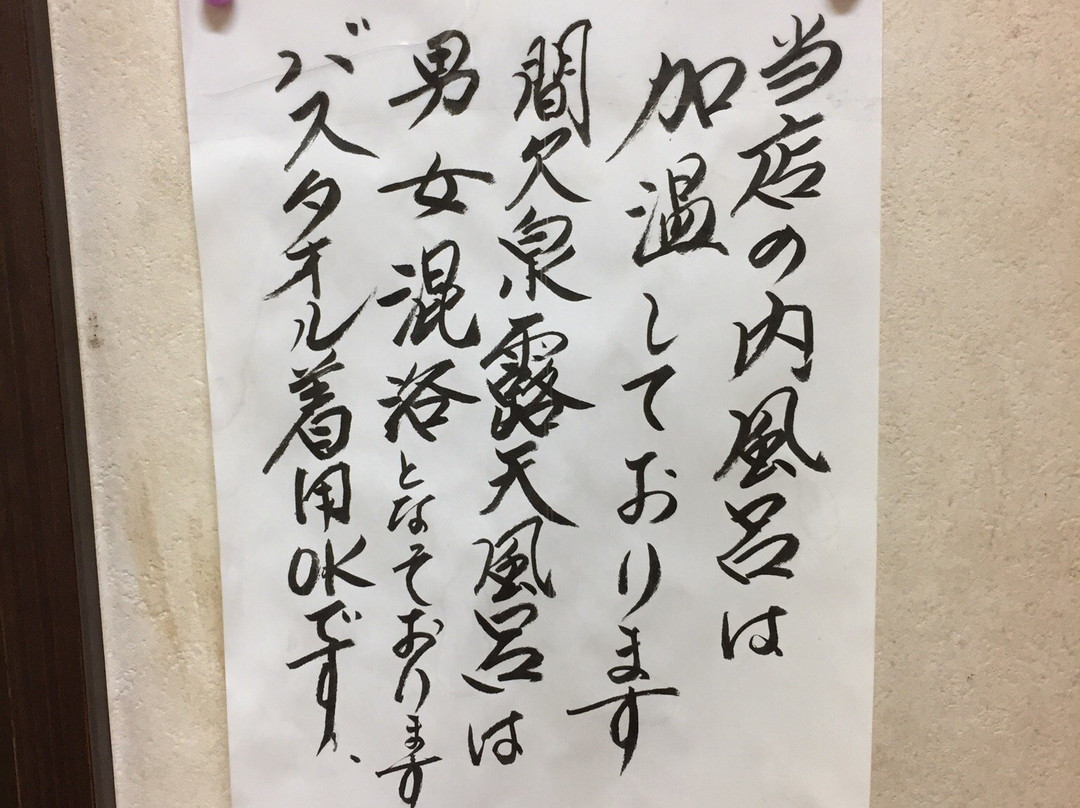 当店の内風呂は
加温しております
間欠泉露天風呂は
男女混浴となっております
バスタオル着用OKです、